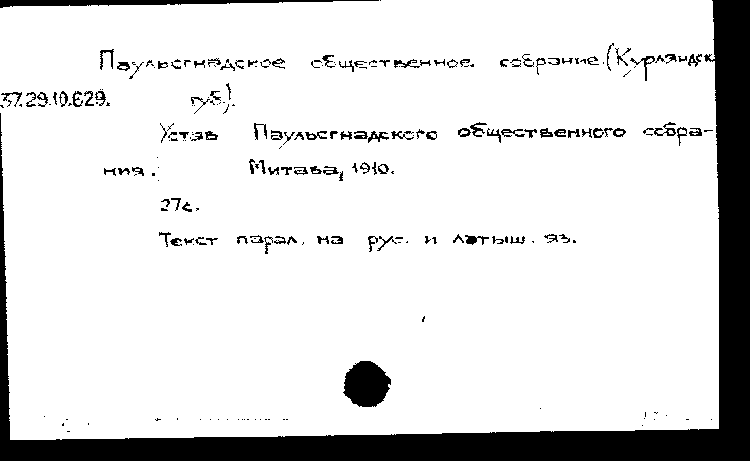 Паульсгнадское общественное собрание (Курляндск.
37.29.10.629. губ).
Устав Паульсгнадского общественного собра-
ния. Митава, 1910.
27с.
Текст парал. на рус. и латыш. яз.